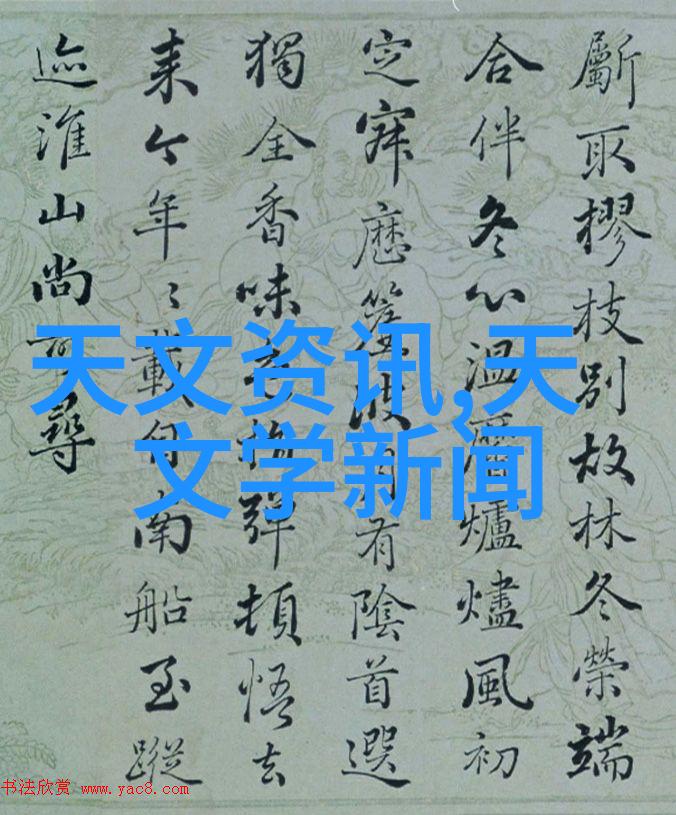 斸取樛枝別故林冬榮端
合伴冬心温爐燼風初
定月有陰首選
獨全香味頓悟去
来今年々載自南船至蹤
迹淮山尚可尋
天文资讯,天
文学新闻
书法欣赏 www.yac8.com